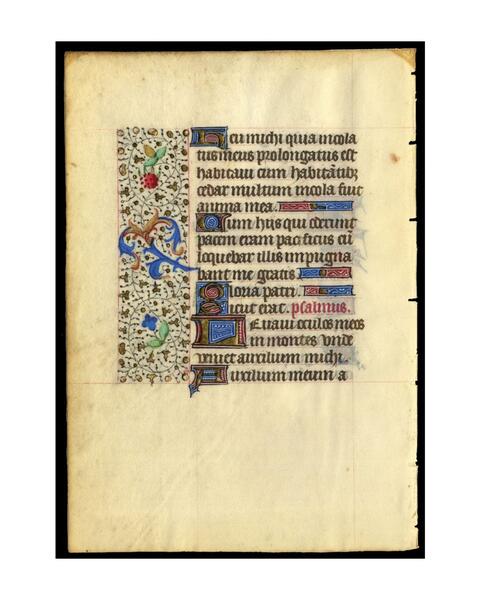 Heu michi quia incola
tus meus prolongatus est
habitaui cum habitātibꝫ
cedar multum incola fuit
anima mea.
Cum hijs qui oderunt
pacem eram pacificus cū
loquebar illis impugna
bant me gratis.
Gloria patri.
Sicut erat. psalmus.
Leuaui oculos meos
in montes vnde
veniet auxilium michi.
Auxilium meum a